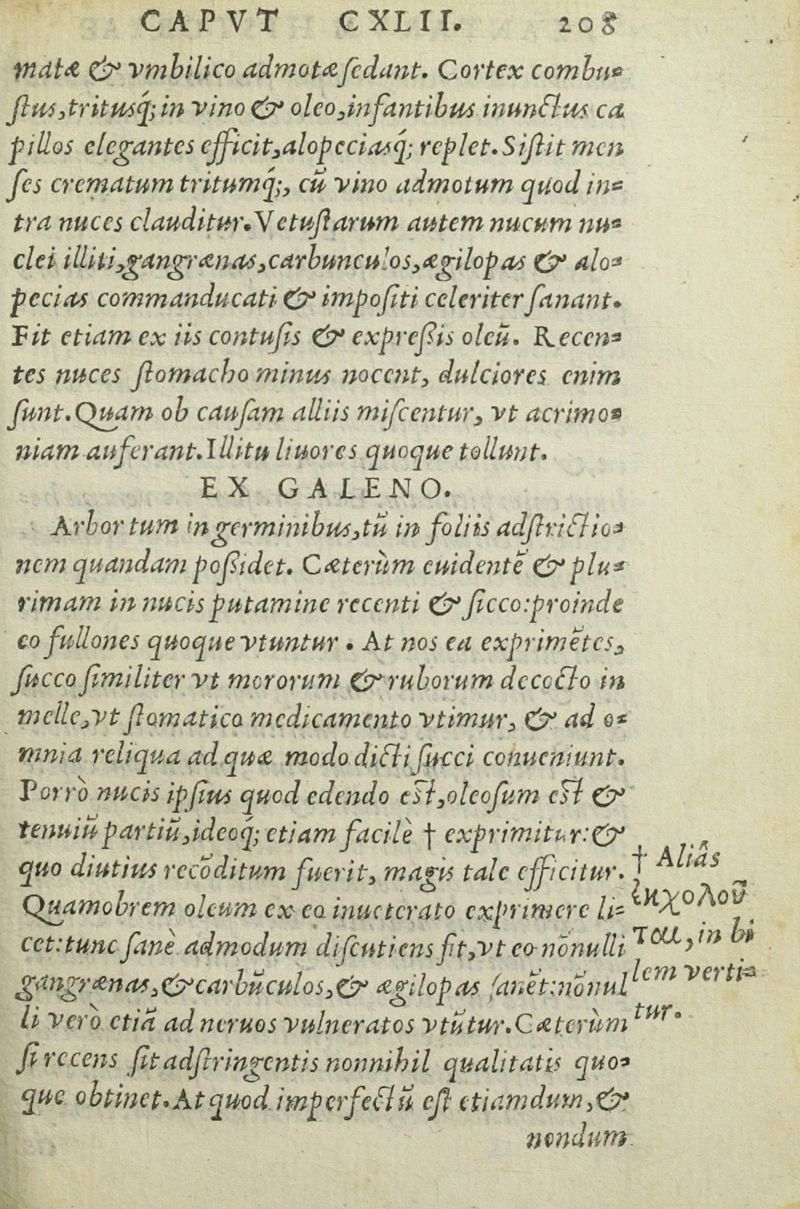 CAPVT CXLII. 208
matæ & vmbilico admotæ sedant. Cortex combu=
stus,tritusq́; in vino & oleo,infantibus inunctus ca
pillos elegantes efficit,alopeciasq́; replet. Sistit men
ses crematum tritumq́;, cũ vino admotum quod in=
tra nuces clauditur. Vetustarum autem nucum nu=
clei illiti,gangrænas,carbunculos,ægilopas & alo=
pecias commanducati & impositi celeriter sanant.
Fit etiam ex iis contusis & expressis oleũ. Recen=
tes nuces stomacho minus nocent, dulciores enim
sunt. Quam ob causam alliis miscentur, vt acrimo=
niam auferant. Illitu liuores quoque tollunt.
EX GALENO.
Arbor tum in germinibus,tũ in foliis adstrictio=
nem quandam possidet. Cæterùm euidentẽ & plu=
rimam in nucis putamine recenti & sicco:proinde
eo fullones quoque vtuntur. At nos ea exprimẽtes,
succo similiter vt mororum & ruborum decocto in
melle,vt stomatico medicamento vtimur, & ad o=
mnia reliqua ad quæ modo dicti succi conueniunt.
Porrò nucis ipsius quod edendo est,oleosum est &
tenuiũ partiũ,ideoq́; etiam facilè † exprimitur:&
quo diutius recõditum fuerit, magis tale efficitur.
Quamobrem oleum ex ea inueterato exprimere li=
cet:tunc sanè admodum discutiens fit,vt eo nõnulli
gangrænas,& carbũculos,& ægilopas sanẽt:nõnul
li verò etiã ad neruos vulneratos vtũtur. Cæterùm
si recens sit adstringentis nonnihil qualitatis quo=
que obtinet. At quod imperfectũ est etiamdum,&
nondum
† Aliàs
ἐκχολοῦ
ται, in bi
lem verti=
tur.